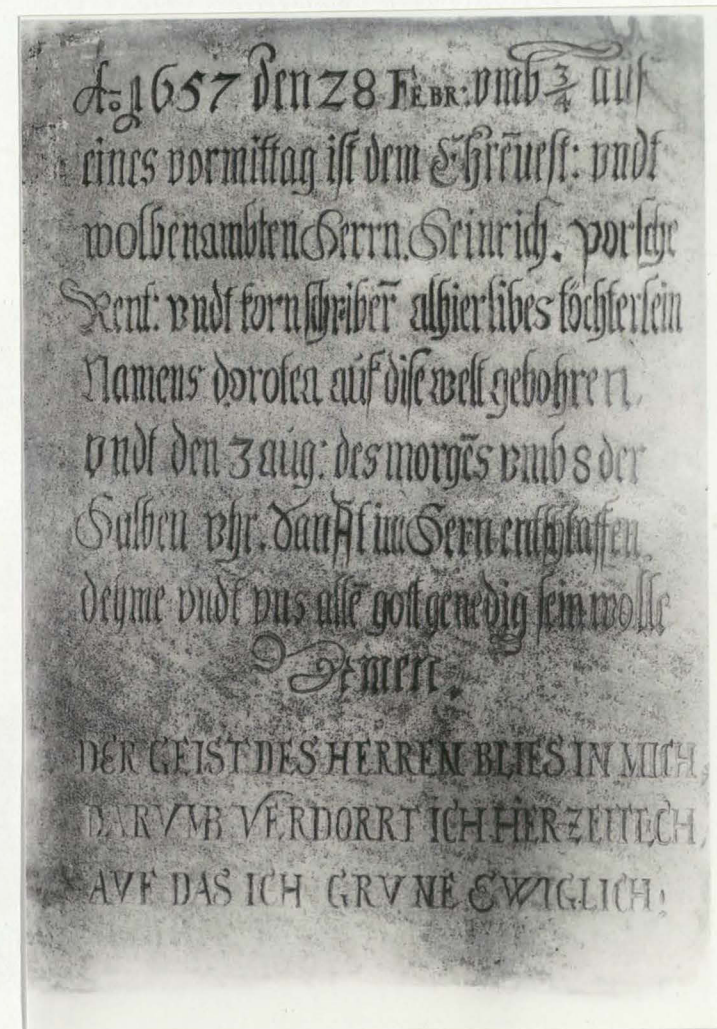 Aō 1657 den 28 FEBR: vmb ¾ auf
eines vormittag ist dem Ehrēuest: vndt
wolbenambten Herrn. Heinrich. porsche
Rent: vndt kornschriber̄ alhier libes töchterlein
Namens dorotea auf dise welt gebohren.
vndt den 3 aug: des morgēs vmb 8 der
Halben vhr. im Hern entschlaffen.
dehme vndt vns allē gott genedig sein wolle
Amen.
DER GEIST DES HERREN BLIES IN MICH,
DARVMB VERDORRT ICH HERZEITECH,
AVF DAS ICH GRVNE EWIGLICH: